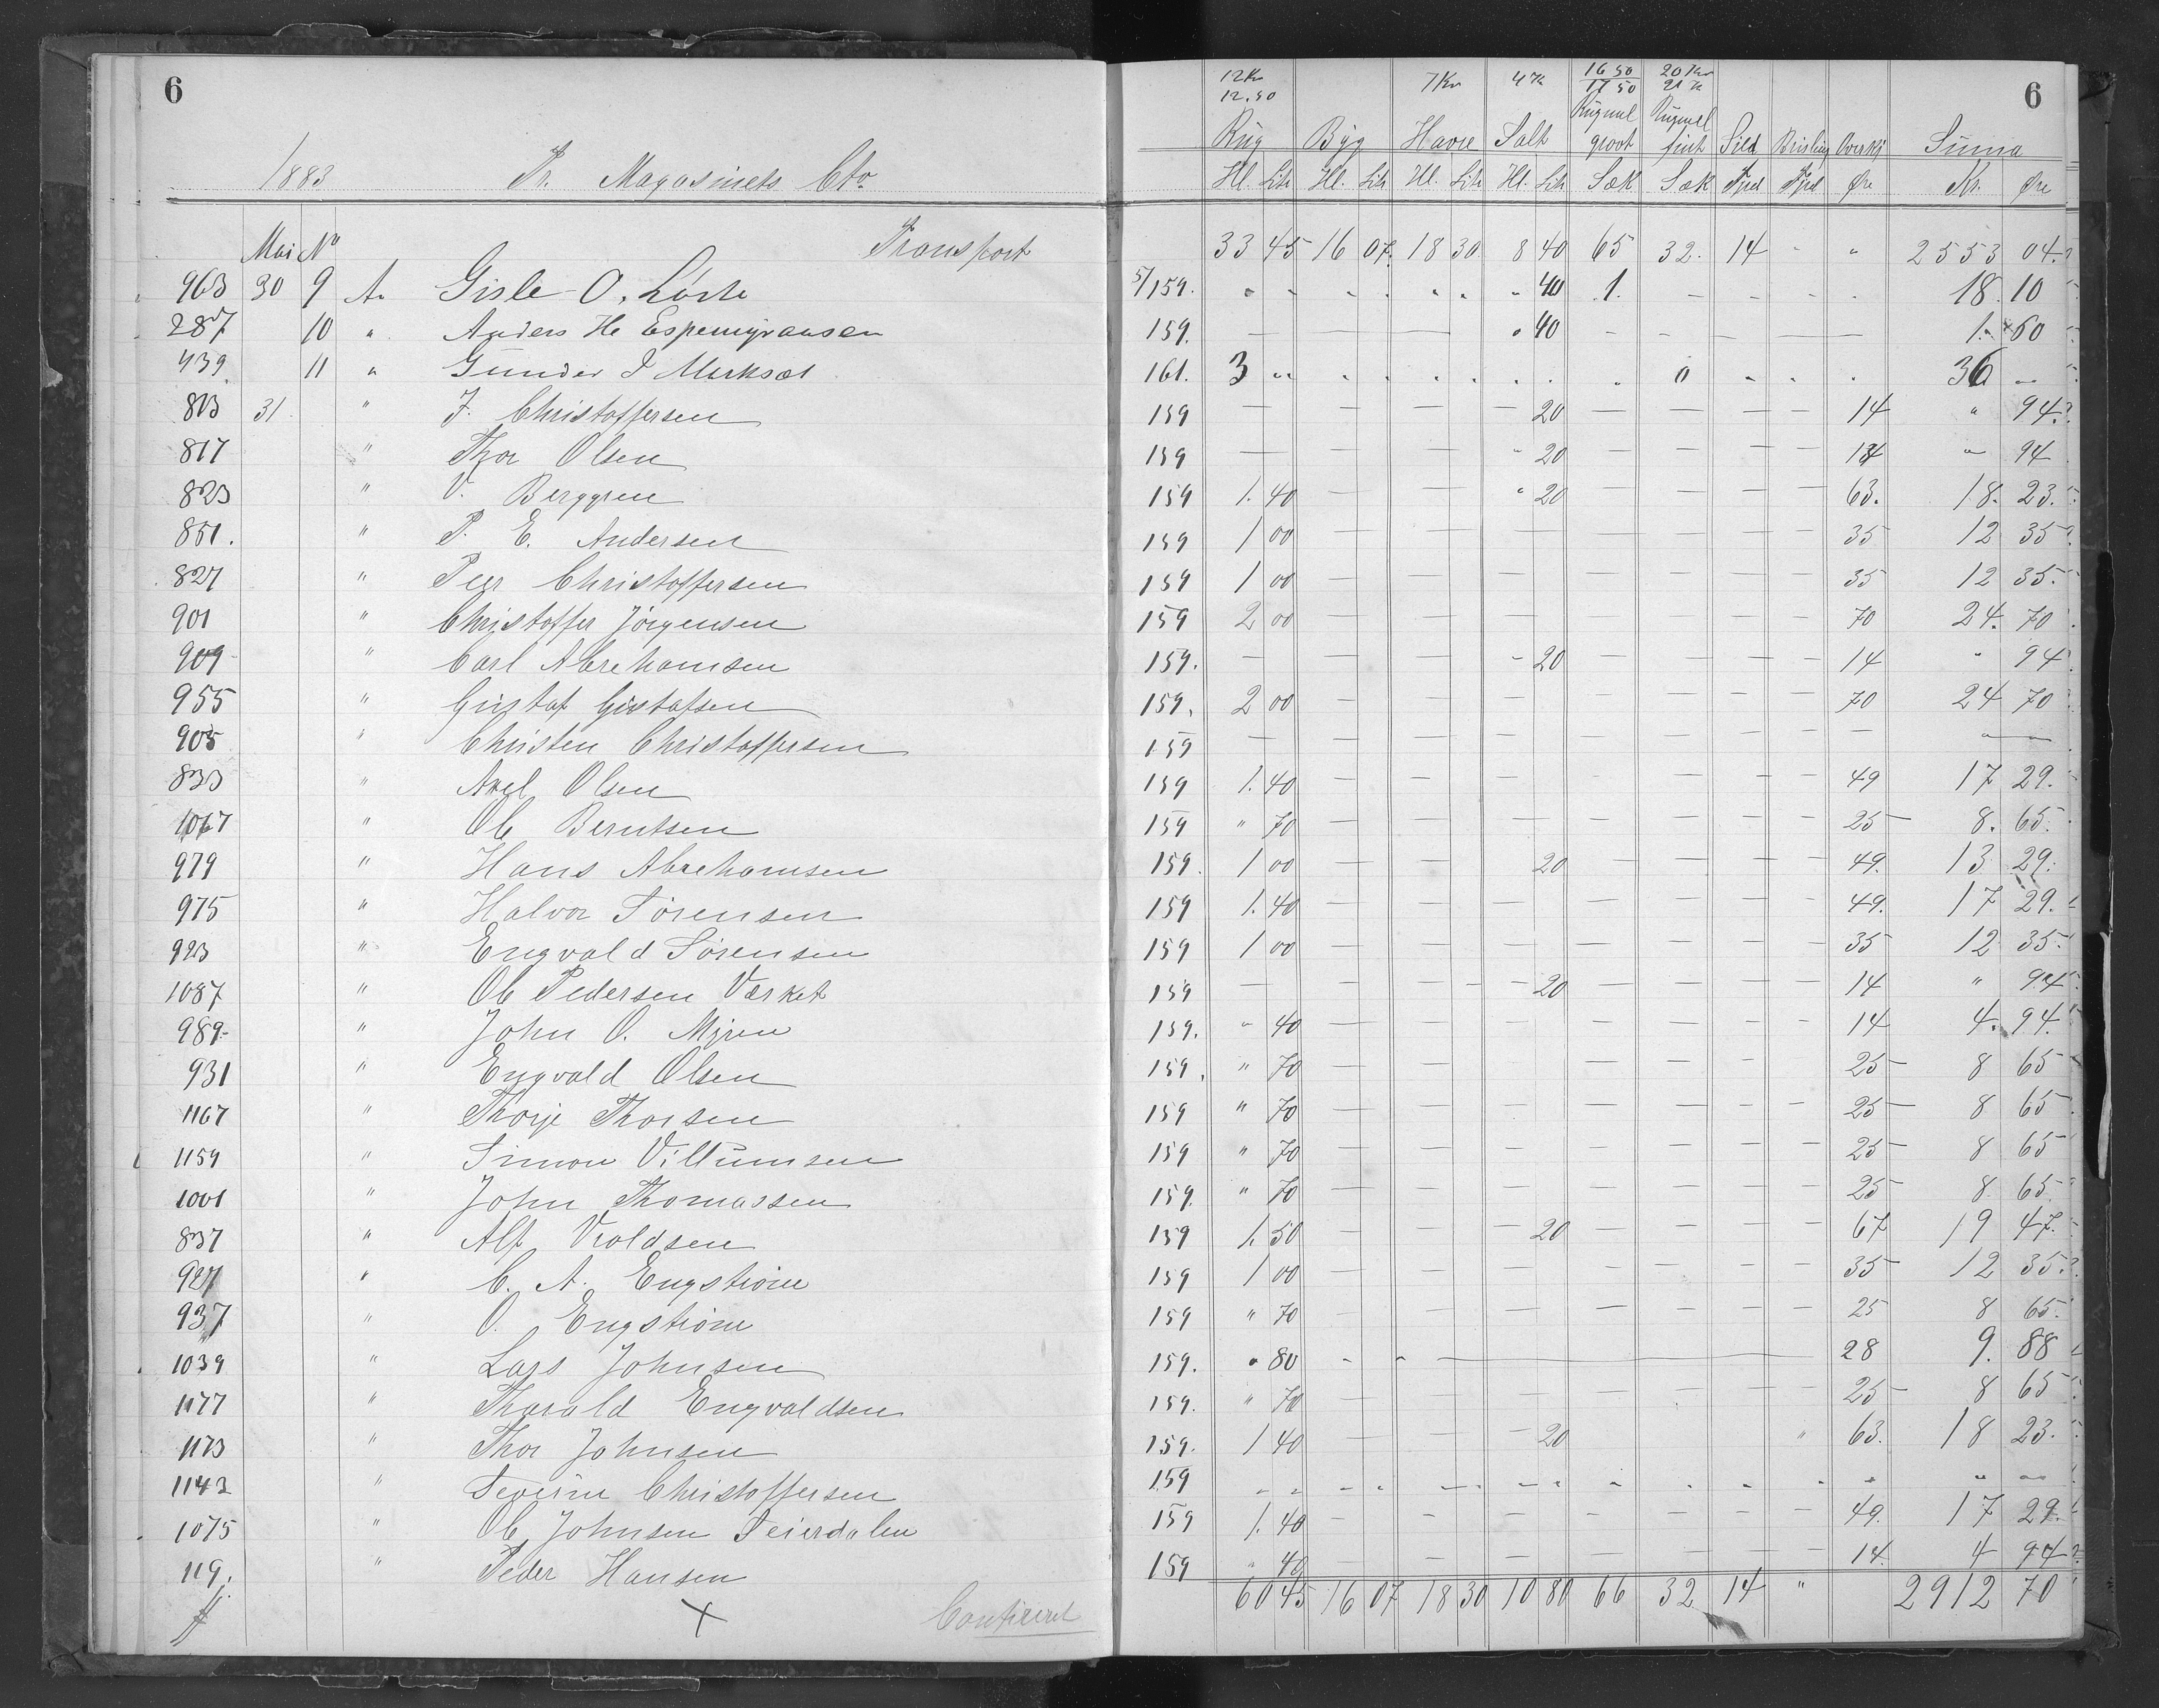 6
1883 Pr. Magasinets Cto.
12 Kr 7 Kr 4 Kr 16 50 20 Kr 6
12.50 17 50 21 Kr
Rug Byg Havre Salt Rugmel groot Rugmel fint Sild Brisling Overkj Suma
Hl. Litr Hl. Litr Hl. Litr Hl. Litr Sæk Sæk Fjrd Fjrd Øre Kr. Øre
Mai No Transport 33 45 16 07 18 30 8 40 65 32 14 - " 2553 04
963 30 9 An Gisle O. 5/159. " " " " " " " 40 1. - - - - 18. 10
287 10 " Anders H. Espemyransen 159. — — " 40 - - - — 1. 60
439. 11 " Gunder J Mørksæt 161. 3 " " " " " " " " 0 " " " 36 "
813 31 " J. Christoffersen 159 — — — — 20 — — — — 14 " 94
817 " Thor Olsen 159 — — — " 20 — — — — 14 " 94
823 " V. Berggren 159 1. 40 — — " 20 — — — — 63. 18. 23.
851. " P. E. Andersen 159 1 00 — — — — — — — 35 12 35
827 " Peer Christoffersen 159 1 00 — — — — — — — 35 12 35.
901 " Christoffer Jörgensen 159 2 00 — — — — — — — 70 24. 70
909 " Carl Abrehamsen 159. — — — - 20 — — — — 14 " 94
955 " Gustaf Gustafsen 159. 2 00 — — — — — — — 70 24 70
905 " Christen Christoffersen 159 — — — — — — — — — " —
833 " Axel Olsen 159 1. 40 — — — — — — — 49 17 29.
1067 " Ole Berntsen 159 " 70 — — — — — — — 25 8. 65.
979 " Hans Abrehamsen 159. 1 00 — — 20 — — — — 49. 13 29.
975 " Halvor Sørensen 159 1. 40 — — — — — — — 49. 17 29.
923 " Engvald Sørensen 159 1 00 — — — — — — — 35 12 35.
1087 " Ole Pedersen Værket 159 — — — — 20 — — — — 14 " 94
989. " John O. Myren 159. " 40 — — — — — — — 14 4. 94.
931 " Engvald Olsen 159. " 70 — — — — — — 25 8 65
1167 " Thorje Thorsen 159 " 70 — — — — — — — 25 8 65
1159 " Simon Villumsen 159 " 70 — — — — — — — 25 8 65
1001 " John Thomassen 159. " 70 — — — — — — — 25 8 65
837 " Alf Vroldsen 159 1. 50 — — — 20 — — — — 67 19 47.
927 " C. A. Engström 159 1 00 — — — — — — — 35 12 35.
937 " O. Engström 159 " 70 — — — — — — — 25 8 65.
1039 " Lars Johnsen 159. " 80 - - — 28 9. 88
1177 " Tharald Engvaldsen 159. " 70 — — — — — — — 25 8 65
1173 " Thor Johnsen 159. 1 40 — — — 20 " 63. 18 23.
1143 " Severine Christoffersen 159 " " " " " " " " " " " " " " "
1075 " Ole Johnsen Seierdalen 159 1. 40 — — — — — — — 49. 17 29.
119. " Peder Hansen 159 " 40 — — — — — — — 14. 4 94
Contireret 60 45 16 07 18 30 10 80 66 32 14 " 2912 70